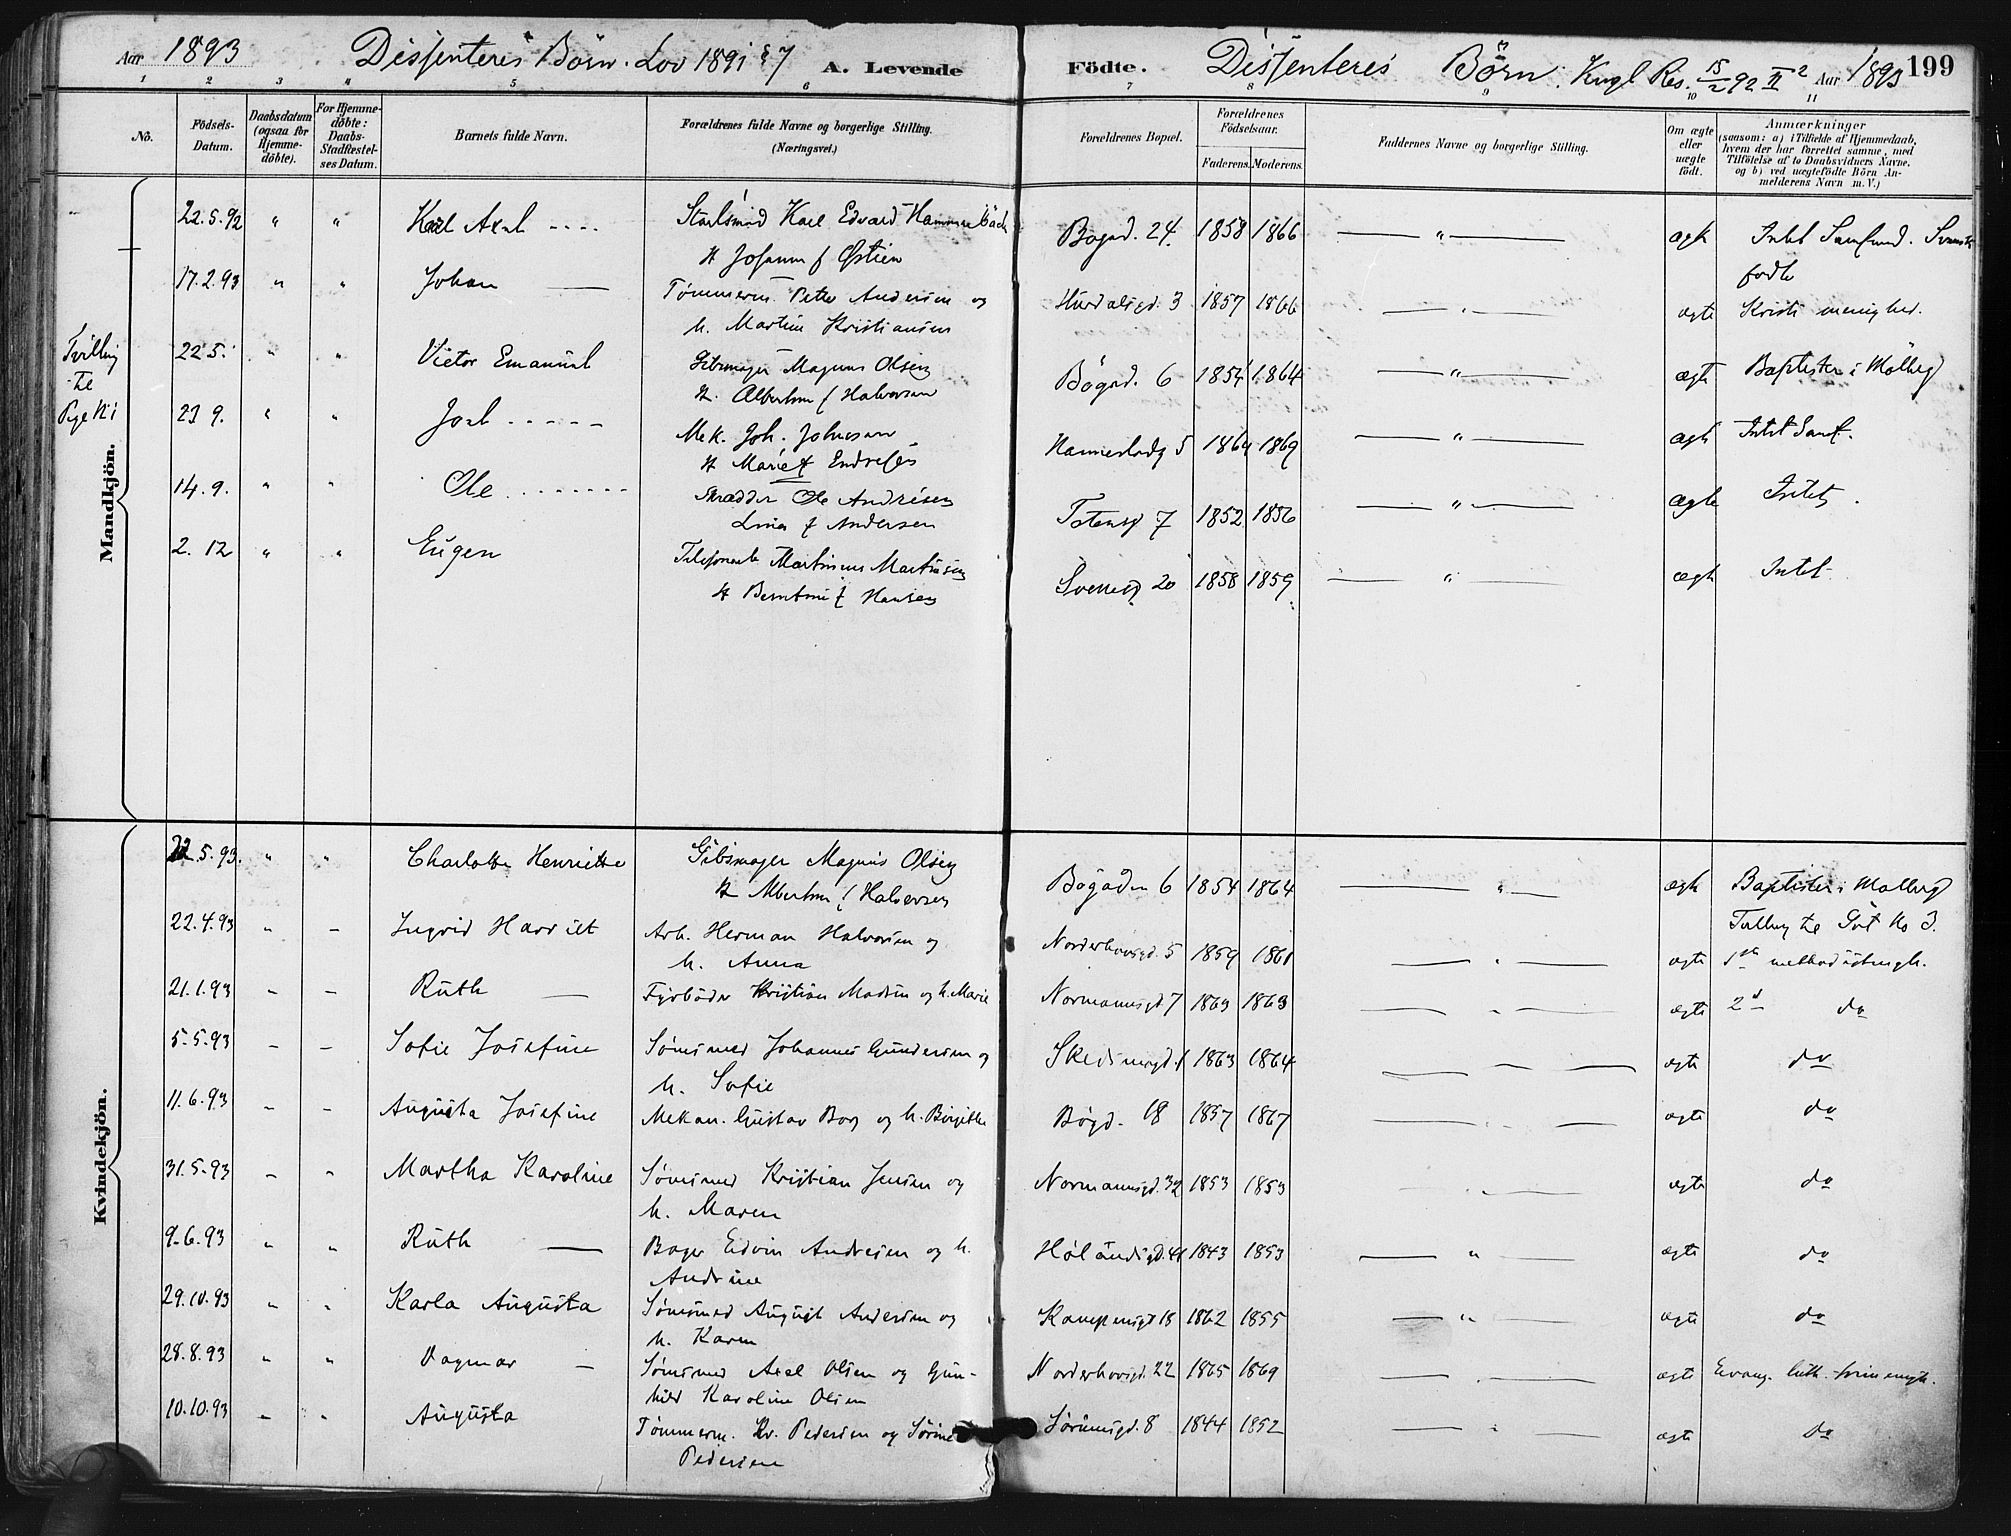 Aar 1893 Dissenteres Börn. Lov 1891 § 7 A. Levende Födte. Dissenteres Börn. Kngl Res. 15/2 92 II 2 Aar 1893 199
1 2 3 4 5 6 7 8 9 10 11
No. Födsels-Datum. Daabsdatum (ogsaa for Hjemmedöbte). For Hjemmedöbte: Daabs-Stadfæstelses Datum. Barnets fulde Navn. Forældrenes fulde Navne og borgerlige Stilling. (Næringsvei.) Forældrenes Bopæl. Forældrenes Födselsaar. Faderens. Moderens. Faddernes Navne og borgerlige Stilling. Om ægte eller uægte födt. Anmærkninger (saasom: a) i Tilfælde af Hjemmedaab, hvem der har forrettet samme, med Tilföielse af to Daabsvidners Navne, og b) ved uægtefödte Börn Anmelderens Navn m. V.)
Mandkjön.
22.5.92 " " Karl Axel Karl Edvard Hammerbäck Bøgad. 24. 1858 1866 " ægte Intet Samfund. Svensk
fødte
17.2.93 " " Johan — Tömmerm. Peter Andersen og Hurdalsgd. 3 1857 1866 " ægte Kristi menighed.
h. Martine Kristiansen
Tvilling
til
Pige No 1
22.5. " " Victor Emanuel Gibsmager Magnus Olsen Bögad. 6 1854 1864 " ægte Baptister i Mölleg
H. Albertine f Halvorsen
23 9. " " Joel Mek. Joh. Johnsen 5 1864 1869 " ægte Intet Samf.
H Marie f Endresen
14.9. " " Ole Skrædder Ole Andresen Totensg 7 1852 1856 " ægte Intet.
Lina f Andersen
2. 12 " " Eugen Martinius Martinsen Sverresg 20 1858 1859 " ægte Intet
H Berntine f Hansen
Kvindekjön.
22.5.93. " " Charlotte Henriette Gibsmager Magnus Olsen Bögaden 6 1854 1864 " ægte Baptister i Mölleg
H Albertine f Halvorsen Tvilling til Gut No 3.
22.4.93 " – Ingrid Harriet Arb. Herman Halvorsen og Norderhovsgd. 5 1859 1861 " ægte 1ste methodistmgh.
h. Anna
21.1.93 – – Ruth — Fyrböder Kristian Madsen og h. Marie Normannsgd 7 1863 1863 " ægte 2d do
5.5.93 – – Sofie Josefine Johannes Gundersen og Skedsmogd. 1 1863 1864 ægte do
h. Sofie
11.6.93 – – Augusta Josefine Mekan. Gustav Borg og h. Birgitte Bögd. 18 1857 1867 ægte do
31.5.93 – " Martha Karoline Kristian Jensen og Normannsgd. 32 1853 1853 ægte do
h. Maren
9.6.93 " " Ruth — Bager Edvin Andresen og h. Hölandsgd. 41 1843 1853 " ægte do
Andrine
29.10.93 " " Karla Augusta August Andersen og Kampensgt 18 1862 1855 " ægte do
h. Karen
28.8.93 " " Dagmar — Axel Olsen og Gun- Norderhovsgd. 22 1865 1869 " ægte Evang. luth. frimengh.
hild Karoline Olsen
10.10.93 – " Augusta Tömmerm. Kr. Pedersen og Sörine Sörumsgd. 8 1844 1852 " ægte do
Pedersen